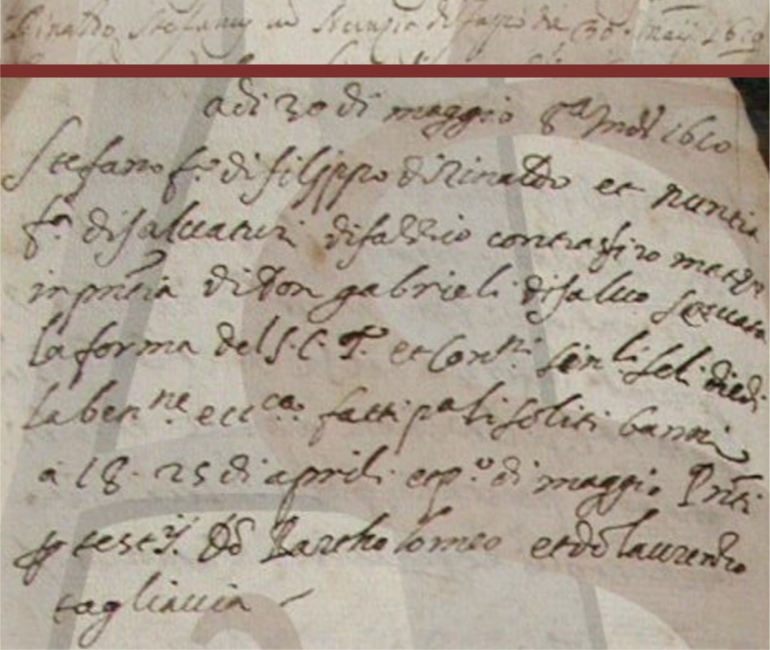 Rinaldo Stefano
adi 30 di maggio 8ª Indi 1610
Stefano f.º di filippo di Rinaldo et nuntia
f.ª di saluaturi difazzio contrassiro matri
in pntia di Don gabrieli disaluo seruata
la forma del S. C. T. et Con.ti sen li seli diedi
la ben.ne ecc.ca fatti p.ª li soliti banni
a 18. 25 di aprili et p.º di maggio Pnti
p testij. Do Bartholomeo et do laurenzo
tagliauia